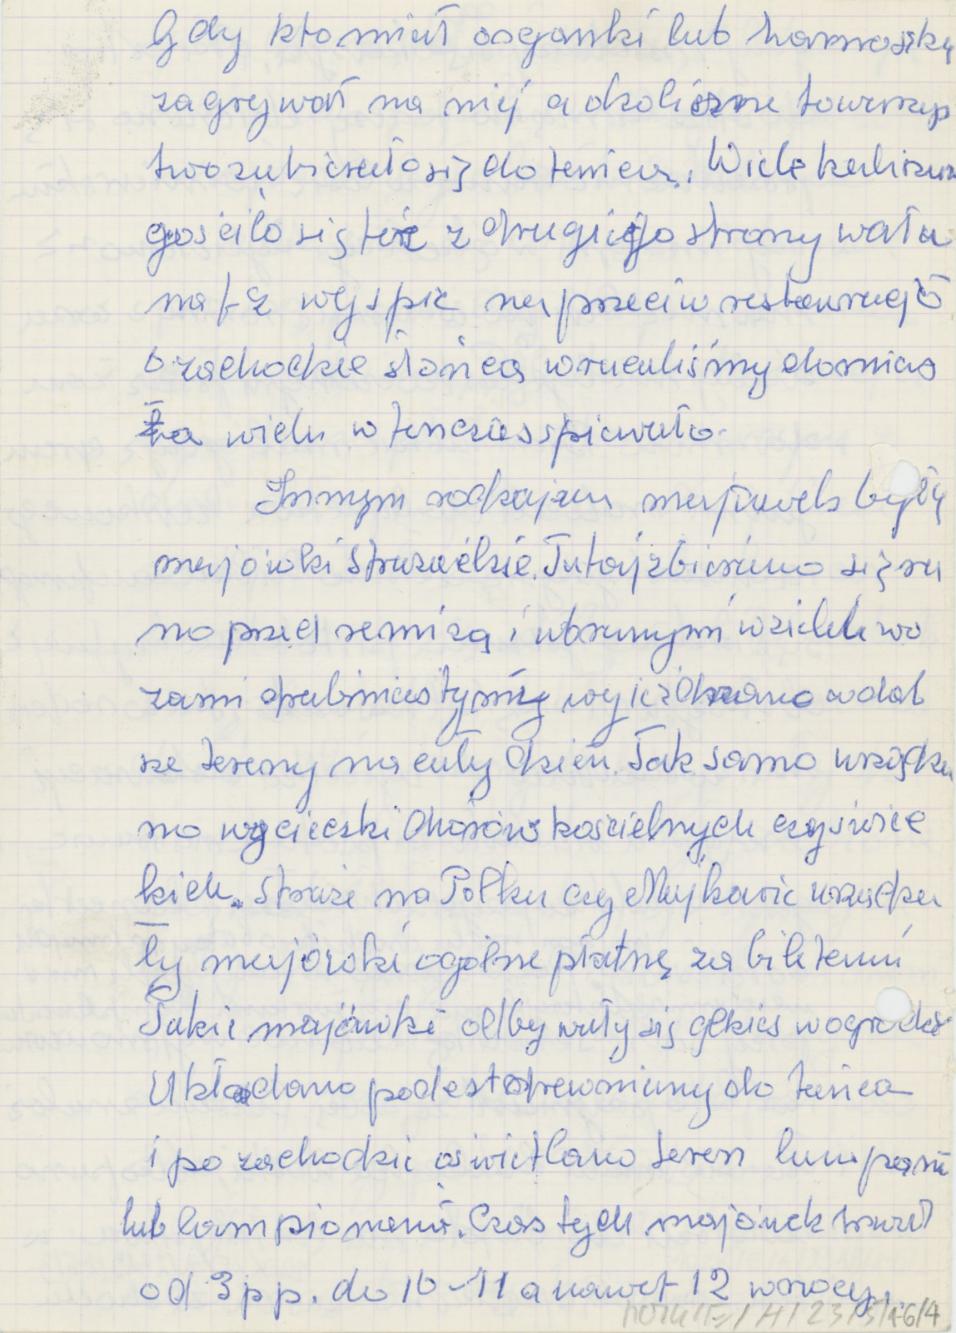 Gdy kto miał organki lub harmoszkę
zagrywał na niej a okoliczne towarzys
two zabierało się do tańca. Wiele kaliszan
gościło się też z drugiej strony wału
na t-z wyspie naprzeciw restauracji
o zachodzie słońca wracaliśmy do miasta
wielu w tenczas śpiewało.
Innym rodzajem majówek były
majówki strażackie. Tutaj zbierano się ra
no przed remizą i ubranymi w zieleń wo
zami drabiniastymi wyjeżdżano w dal
sze tereny na cały dzień. Tak samo urządza
no wycieczki chórów kościelnych czy świec
kich. Straże na Polku czy Majkowie urządza
ły majówki ogólne płatne za biletami
Takie majówki odbywały się gdzieś w ogrodzie
Układano podest drewniany do tańca
i po zachodzie oświetlano teren lampami
lub lampionami. Czas tych majówek trwał
od 3 pp. do 10-11 a nawet 12 w nocy.